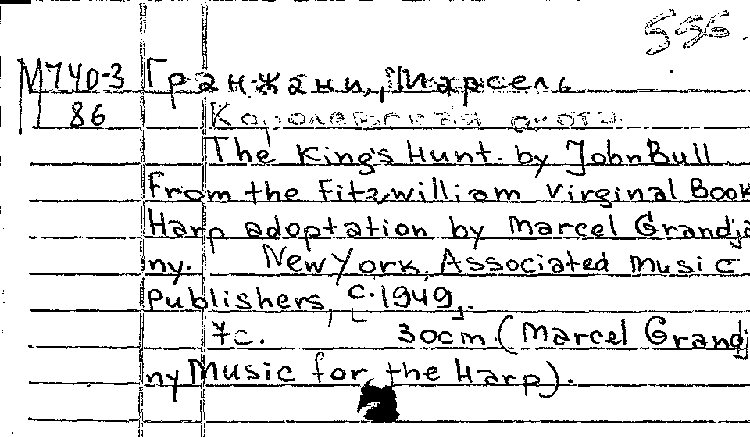 556.
М740-3 Гранжани, Марсель
86 Королевская охота.
The King's Hunt. by John Bull
From the Fitzwilliam Virginal Book
Harp adoptation by Marcel Grandja
ny. New York, Associated Music
Publishers, c.1949,.
7с. 30cm (Marcel Grandj
ny Music for the Harp).